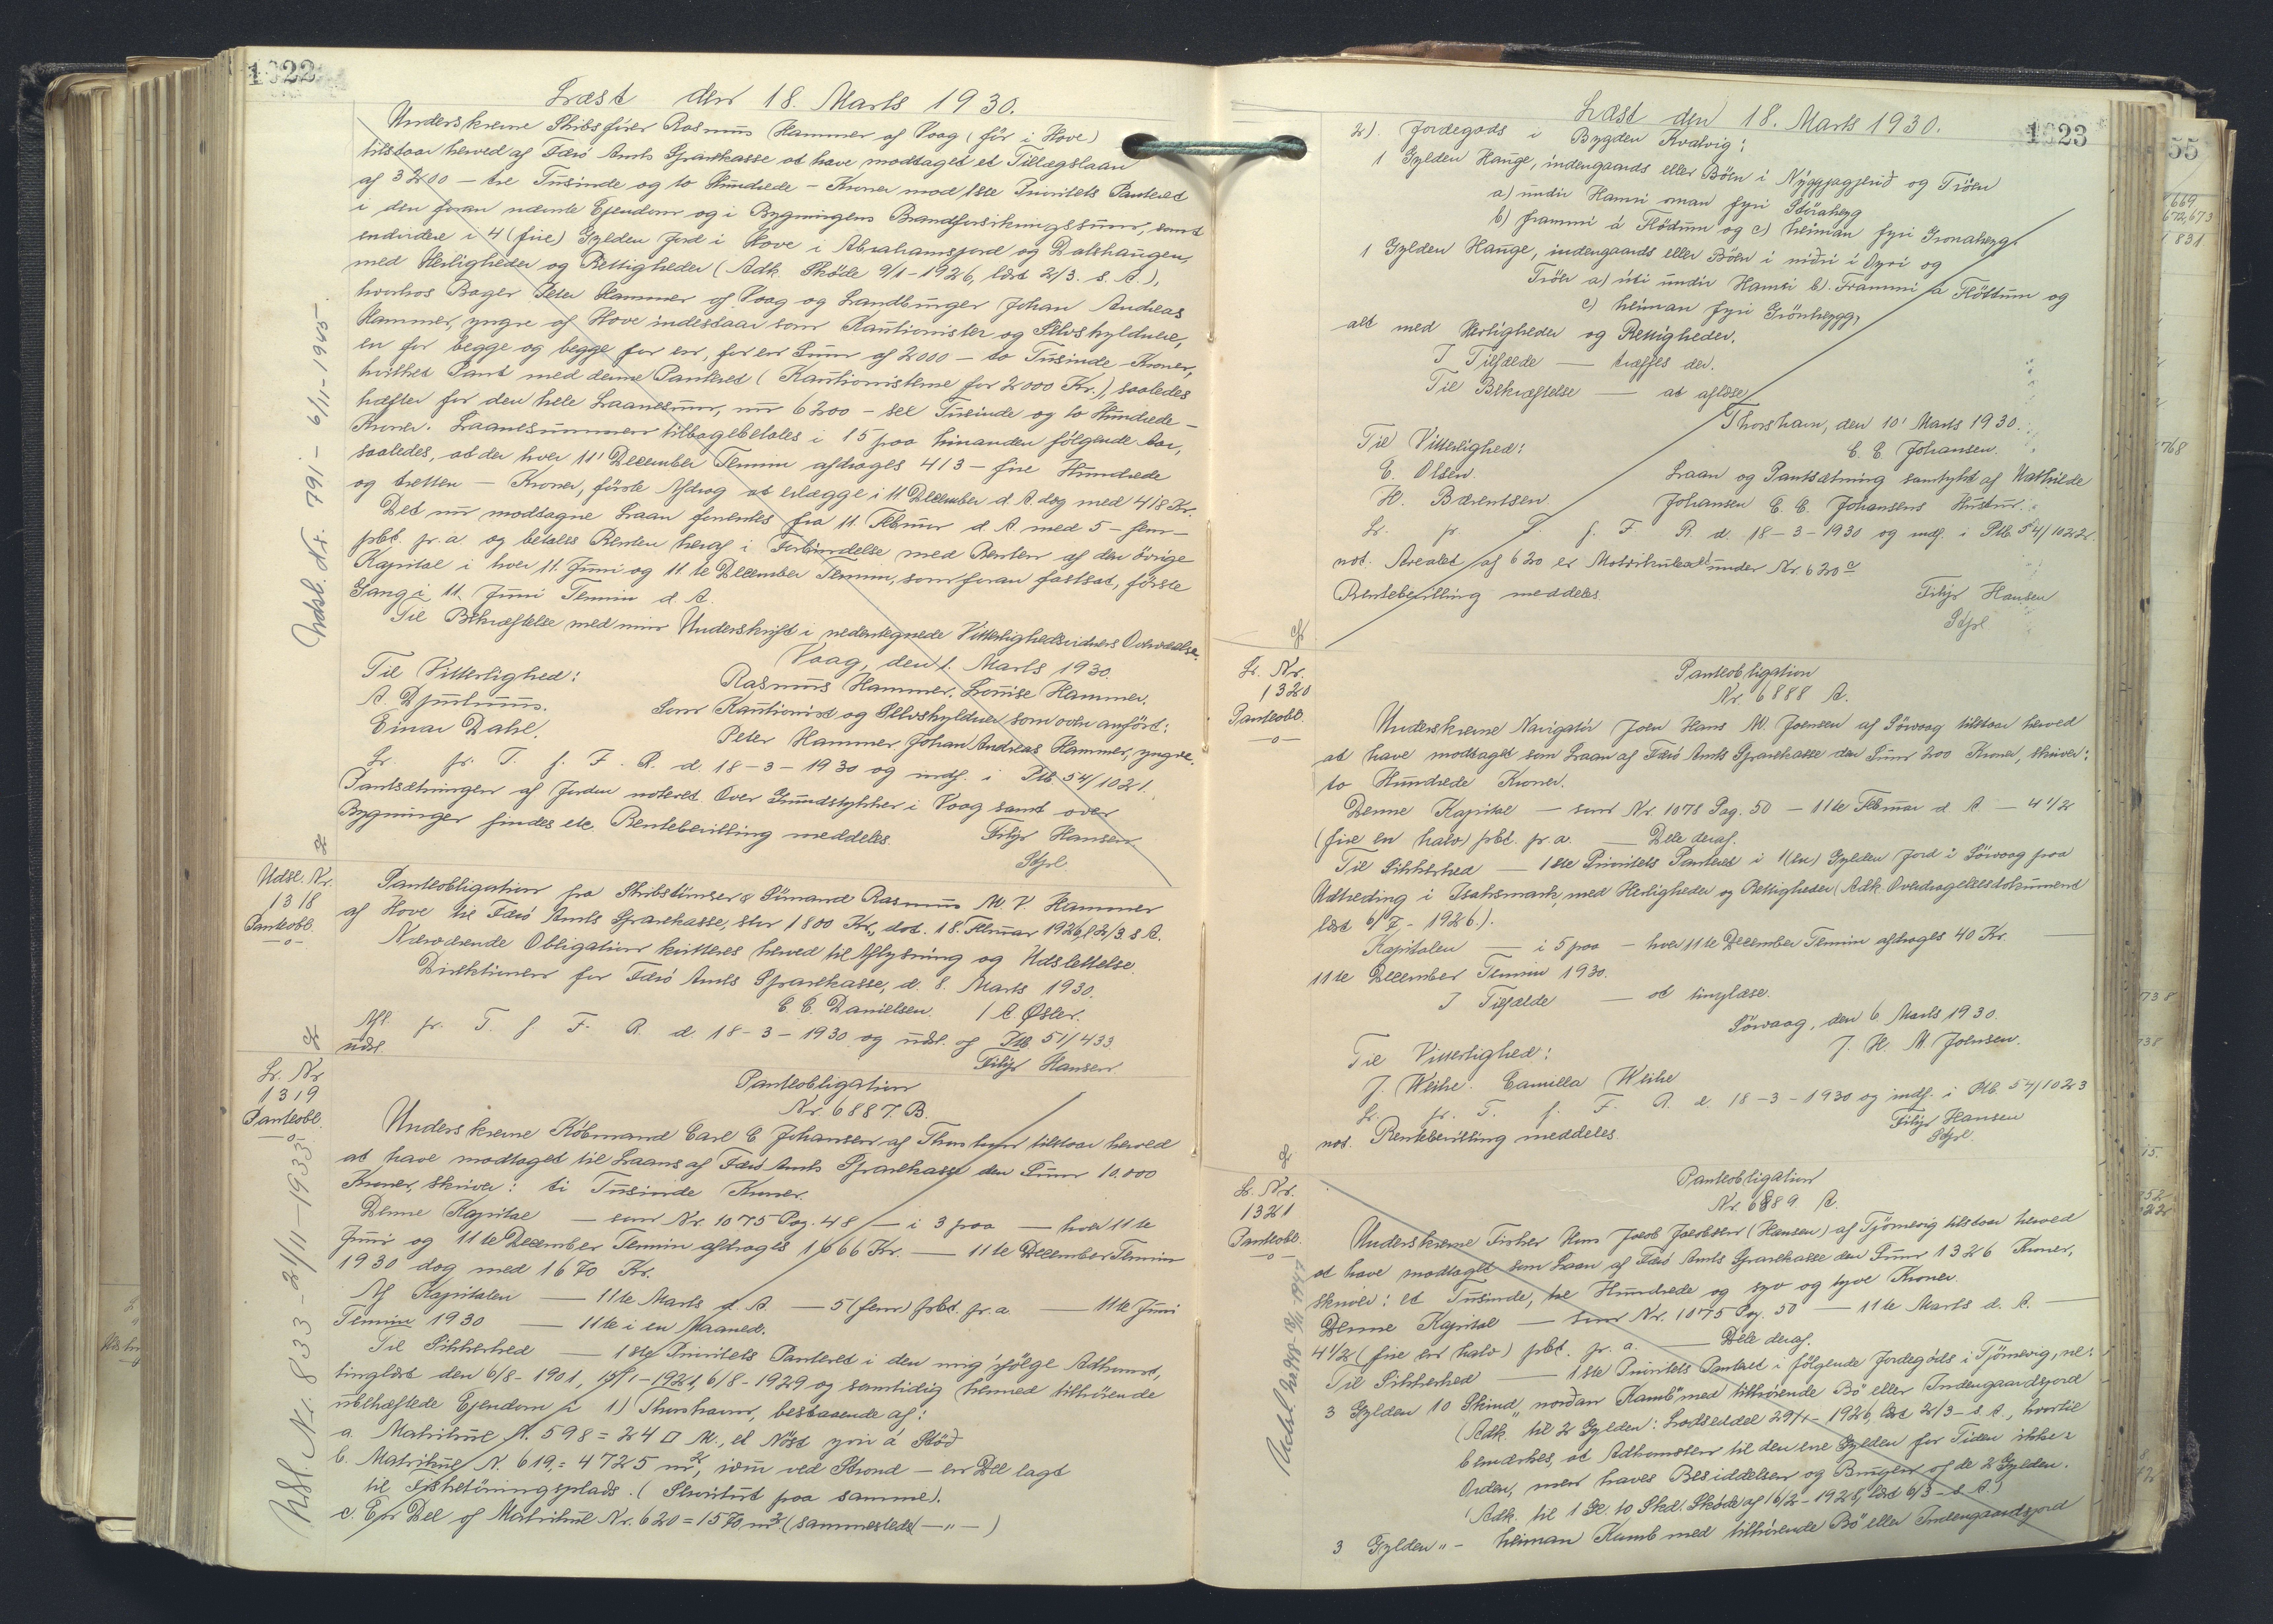 1022
Læst den 18. Marts 1930.
Underskrevne Skibsfører Rasmus Hammer af Vaag (før i Hove)
tilstaar herved af Færö Amts Sparekasse at have modtaget et Tillægslaan
af 3200 – tre Tusinde og to Hundrede – Kroner mod 1ste Prioritets Panteret
i den foran nævnte Ejendom og i Bygningens Brandforsikringssum, samt
endvidere i 4 (fire) Gylden Jord i Hove i Abrahamsjord og Dalthaugen,
med Herligheder og Rettigheder (Adk. Skøde 9/1-1926, læst 2/3. s. A.),
hvorhos Bager Peter Hammer af Vaag og Landbruger Johan Andreas
Hammer, yngre af Hove indestaar som Kautionister og Selvskyldnere,
en for begge og begge for en, for en Sum af 2000 – to Tusinde – Kroner,
hvilket Pant med denne Panteret (Kautionisterne for 2000 Kr.), saaledes
hæfter for den hele Laanesum, nu 6200 – seks Tusinde og to Hundrede –
Kroner. Laanesummen tilbagebetales i 15 paa hinanden følgende Aar,
saaledes, at der hver 11' December Termin afdrages 413 – fire Hundrede
og tretten – Kroner, første Afdrag at erlægge i 11 December d. A. dog med 418 Kr.
Det nu modtagne Laan forrentes fra 11. Februar d. A. med 5 – fem –
pct. pr. a. og betales Renten heraf i Forbindelse med Renten af den øvrige
Kapital i hver 11. Juni og 11.te December Termin, som foran fastsat, første
Gang i 11. Juni Termin d. A.
Til Bekræftelse med min Underskrift i nedentegnede Vitterlighedsvidners Overværelse.
Vaag, den 1. Marts 1930.
Til Vitterlighed: Rasmus Hammer. Louise Hammer.
A. Djurhuus. Som Kautionist og Selvskyldner som oven anført:
Einar Dahl. Peter Hammer, Johan Andreas Hammer, yngre.
Lr. fr. T. f. F. R. d. 18-3-1930 og indf. i Ptb. 54/1021.
Pantsætningen af Jorden noteret. Over Grundstykker i Vaag samt over
Bygninger findes etc. Rentebevilling meddeles. Filip Hansen
Udsl. Nr. 791 – 6/11-1945.
Udsl. Nr.
1318
Panteobl.
–o–
Panteobligation fra Skibstømrer & Sømand Rasmus M. V. Hammer
af Hove til Færö Amts Sparekasse, stor 1800 Kr., dat. 18. Februar 1926, l. 2/3. s. A.
Nærværende Obligation kvitteres herved til Aflysning og Udslettelse.
Direktionen for Færö Amts Sparekasse, d. 8. Marts 1930.
C. C. Danielsen. / A. Øster.
Afl. fr. T. f. F. R. d. 18-3-1930 og udsl. af Ptb. 51/433.
udsl. Filip Hansen
Lr. Nr.
1319
Panteobl.
–o–
Panteobligation
Nr. 6887. B.
Underskrevne Købmand Carl C Johansen af Thorshavn tilstaar herved
at have modtaget til Laans af Færö Amts Sparekasse den Sum 10.000
Kroner, skriver: ti Tusinde Kroner.
Denne Kapital – som Nr. 1075 Pag. 48 – i 3 paa – hver 11te
Juni og 11te December Termin afdrages 1666 Kr. – 11te December Termin
1930 dog med 1670 Kr.
Af Kapitalen – 11te Marts d. A. – 5 (fem) pct. pr. a. – 11te Juni
Termin 1930 – 11te i en Maaned.
Til Sikkerhed – 1ste Prioritets Panteret i den mig ifølge Adkomst,
tinglæst den 6/8-1901, 6/8-1929 og samtidig hermed tilhørende
ubehæftede Ejendom i 1) Thorshavn, bestaaende af:
a. Matrikul N. 598 = 24 □ M., et Nøst yvir á Støð
b. Matrikul N. 619, = 4725 m², ved Strond – en Del lagt
til Fisketøringsplads. (Servitut paa samme).
c. En Del af Matrikul Nr. 620 = 1570 m² (sammesteds – „ – )
Udsl. Nr. 833 – 21/11-1933.
1023
Læst den 18. Marts 1930.
2). Jordegods i Bygden Kvalvig:
1 Gylden Hauge, indengaards eller Böen i Nýggjagjerið og Tröen
a) undir Hamri oman fyri Stórahegg
b) frammi á Flödum og c) heiman fyri Gronahegg
1 Gylden Hauge, indengaards eller Böen i niðri í Oyri og
Tröen a) úti undir Hamri b) Frammi á Fløttum og
c) heiman fyri Grönhegg,
alt med Herligheder og Rettigheder.
I Tilfælde – træffes der.
Til Bekræftelse – at aflæse
Thorshavn, den 10' Marts 1930.
Til Vitterlighed: C. C Johansen.
E. Olsen. Laan og Pantsætning samtykt af Mathilde
H. Bærentsen Johansen C. C. Johansens Hustru.
Lr. fr T. f. F. R. d. 18-3-1930 og indf. i Ptb. 54/1022.
not. Arealet af 620 er Matrikuleret under Nr. 620 a
Rentebevilling meddeles Filip Hansen
Lr. Nr.
1320
Panteobl.
–o–
Panteobligation
Nr. 6888 A.
Underskrevne Navigatör Joen Hans M. Joensen af Sörvaag tilstaar herved
at have modtaget som Laan af Færö Amts Sparekasse den Sum 200 Kroner, skriver:
to Hundrede Kroner.
Denne Kapital – som Nr. 1078 Pag. 50 – 11te Februar d. A. – 4 1/2
(fire en halv) pct. pr. a. – Dele deraf.
Til Sikkerhed – 1ste Prioritets Panteret i 1 (en) Gylden Jord i Sörvaag paa
Udtreding i Isaksmark, med Herligheder og Rettigheder (Adk. Overdragelsesdokument
læst 6/7-1926).
Kapitalen – i 5 paa – hver 11te December Termin afdrages 40 Kr. –
11te December Termin 1930.
I Tilfælde – at tinglæse.
Sörvaag, den 6 Marts 1930.
Til Vitterlighed: J. H. M. Joensen.
J. Weihe. Camilla Weihe
Lr. fr. T. f. F. R. d. 18-3-1930 og indf. i Ptb. 54/1023
not. Rentebevilling meddeles. Filip Hansen
Lr. Nr.
1321
Panteobl.
–o–
Panteobligation
Nr. 6889 A.
Underskrevne Fisker Hans Jacob Jacobsen (Hansen) af Tjörnevig tilstaar herved
at have modtaget som Laan af Færö Amts Sparekasse den Sum 1326 Kroner,
skriver: et Tusinde, tre Hundrede og syv og tyve Kroner.
Denne Kapital – som Nr. 1075 Pag. 50 – 11te Marts d. A. –
4 1/2 (fire en halv) pct. pr. a. – Dele deraf.
Til Sikkerhed – 1ste Prioritets Panteret i følgende Jordegods i Tjörnevig, nl:
3 Gylden 10 Skind „norðan Kamb" med tilhørende Bø eller Indengaardsjord
(Adk. til 2 Gylden: Lodseddel 29/4-1926, læst 2/3-s. A., hvortil
bemærkes, at Adkomsten til den ene Gylden for Tiden ikke er i
Orden, men haves Besiddelsen og Brugen af de 2 Gylden.
(Adk. til 1 Gl. 10 Skd. Skøde af 16/2-1928, læst 6/3-s. A.)
3 Gylden „– heiman Kamb med tilhørende Bø eller Indengaardsjord
55
831
768
738